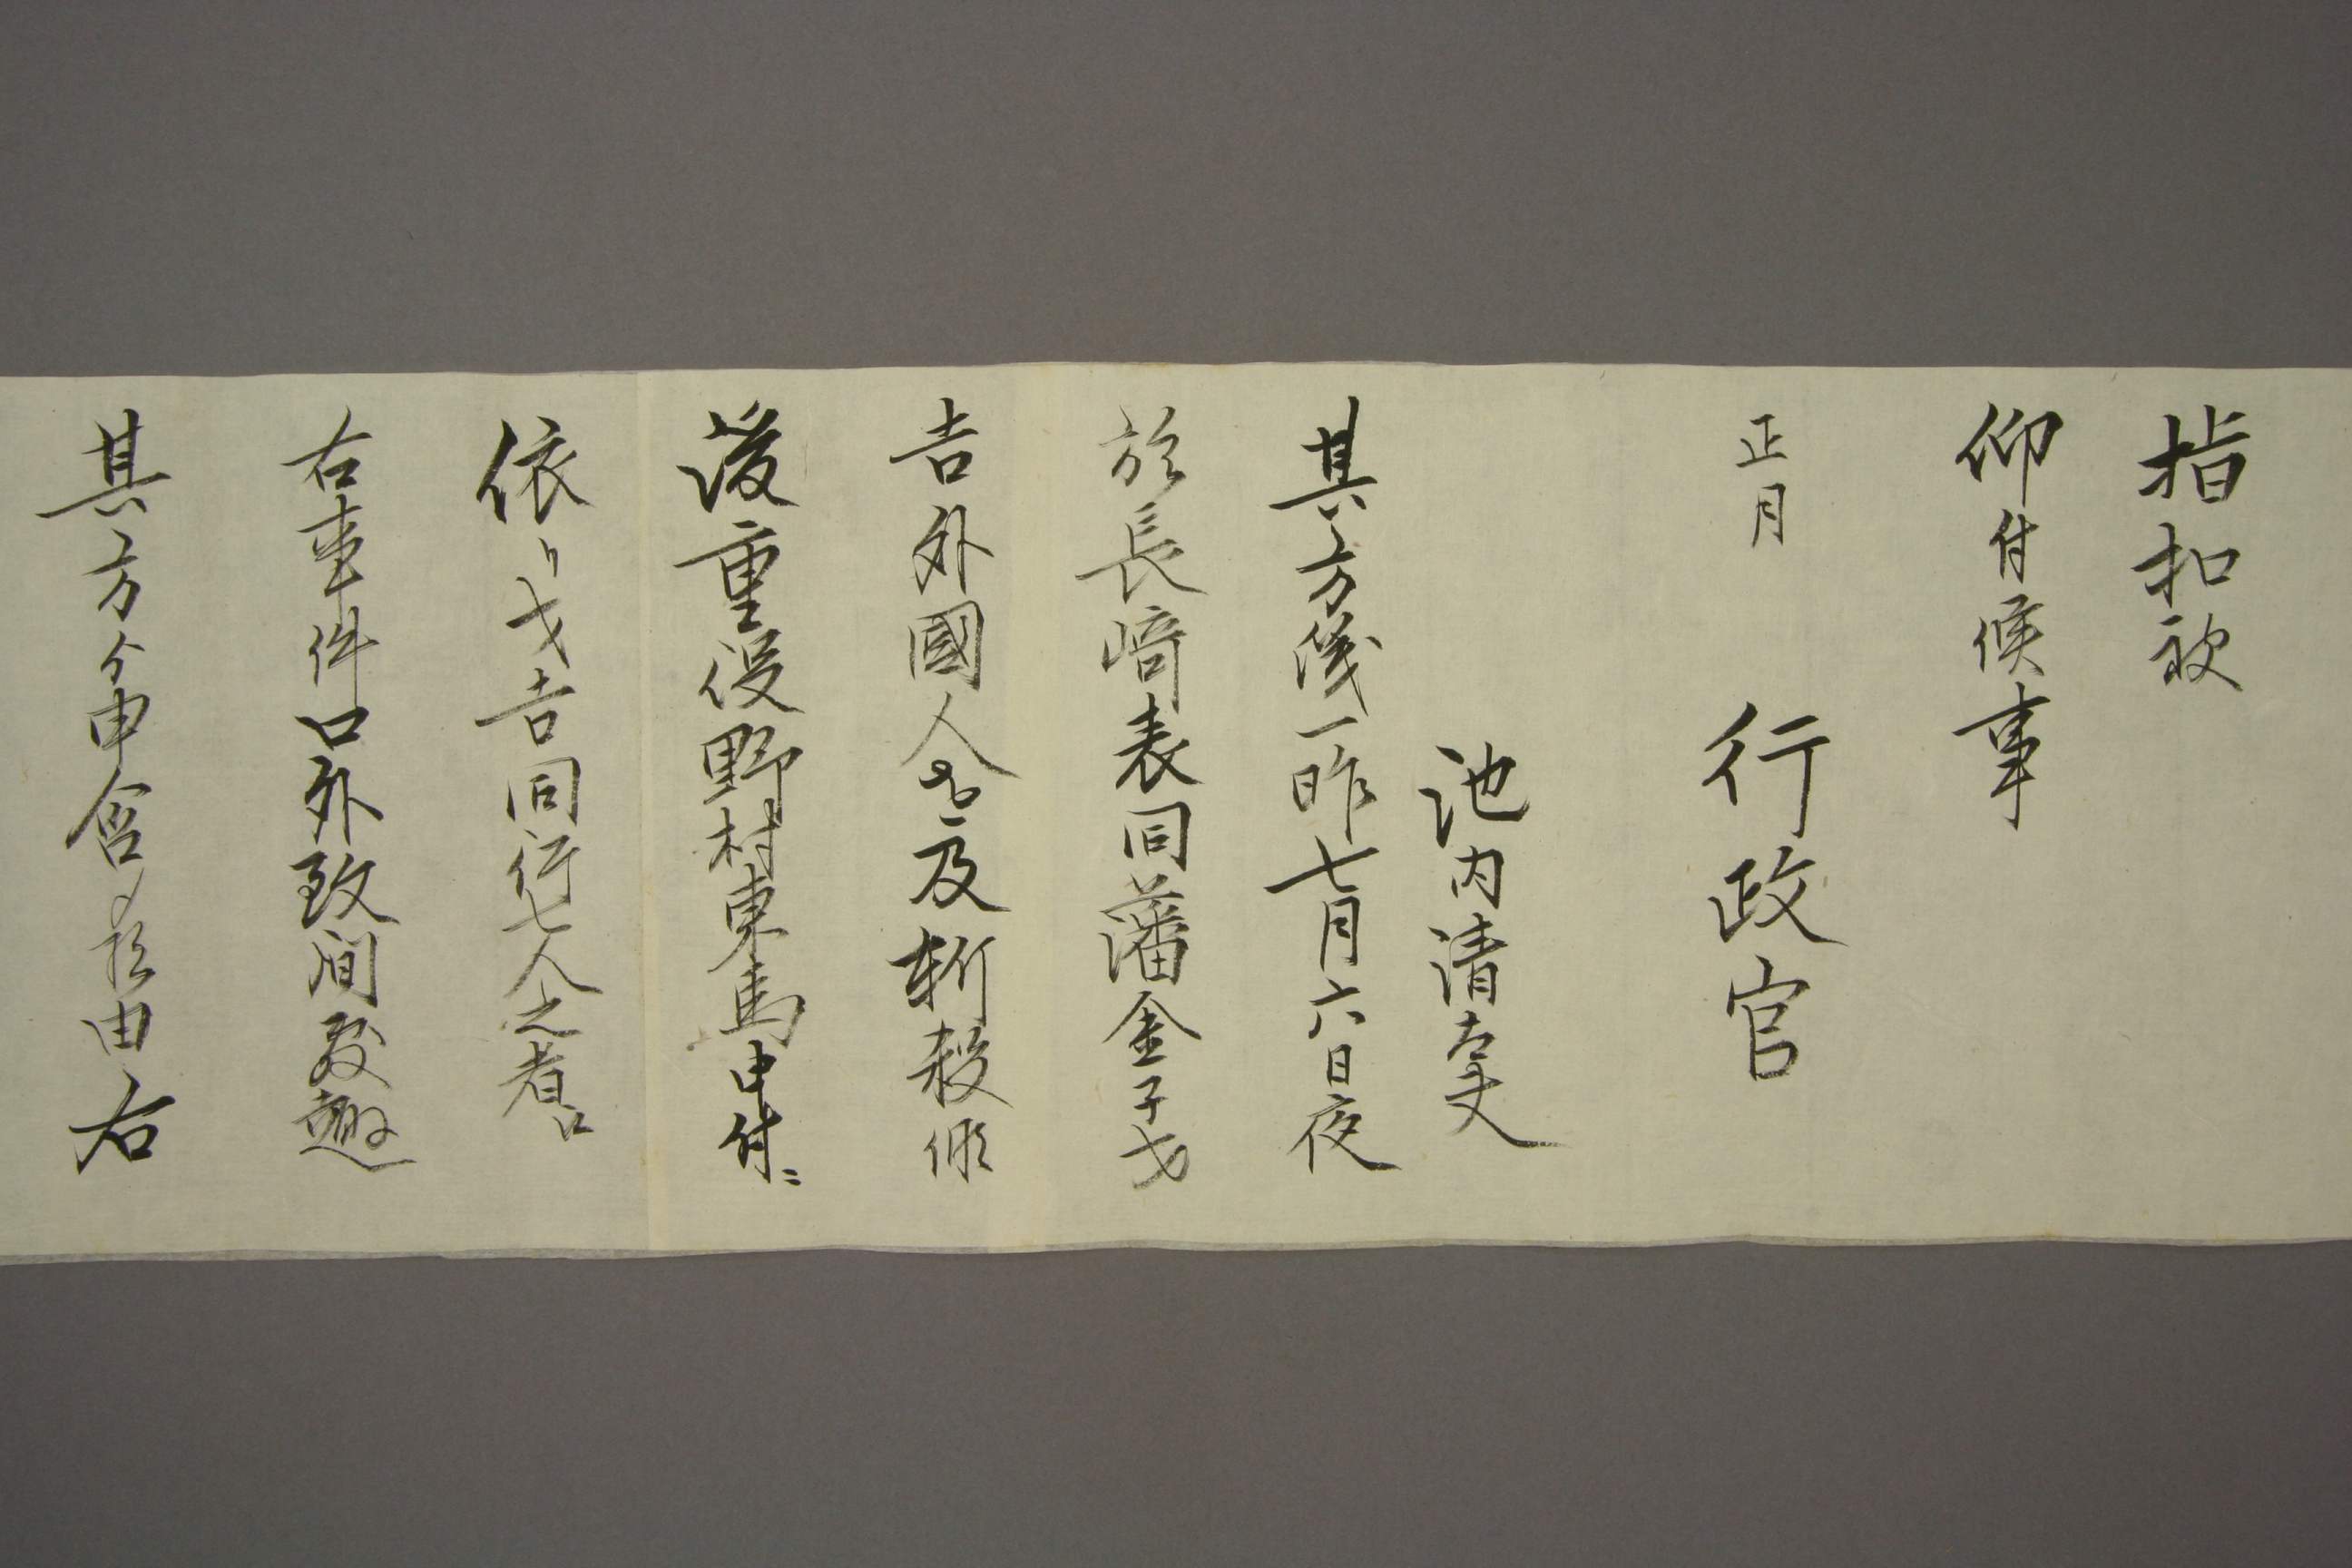 指扣被
仰付候事
正月　行政官
池内清太夫
其方儀一昨七月六日夜
於長崎表同藩金子才
吉外國人を及斬殺候
後重役野村東馬申付ニ
依り才吉同行七人之者口
右事件口外致間敷趣
其方ゟ申含メ候由右